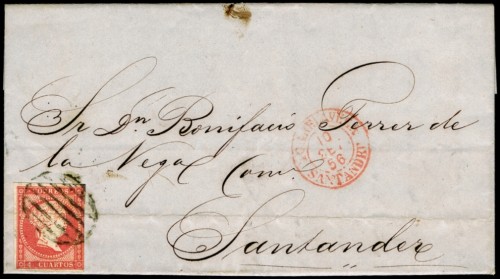 Sr Dn Bonifacio Ferrer de
la Vega Com.
Santander
10
56
SANTANDER
4 CUARTOS